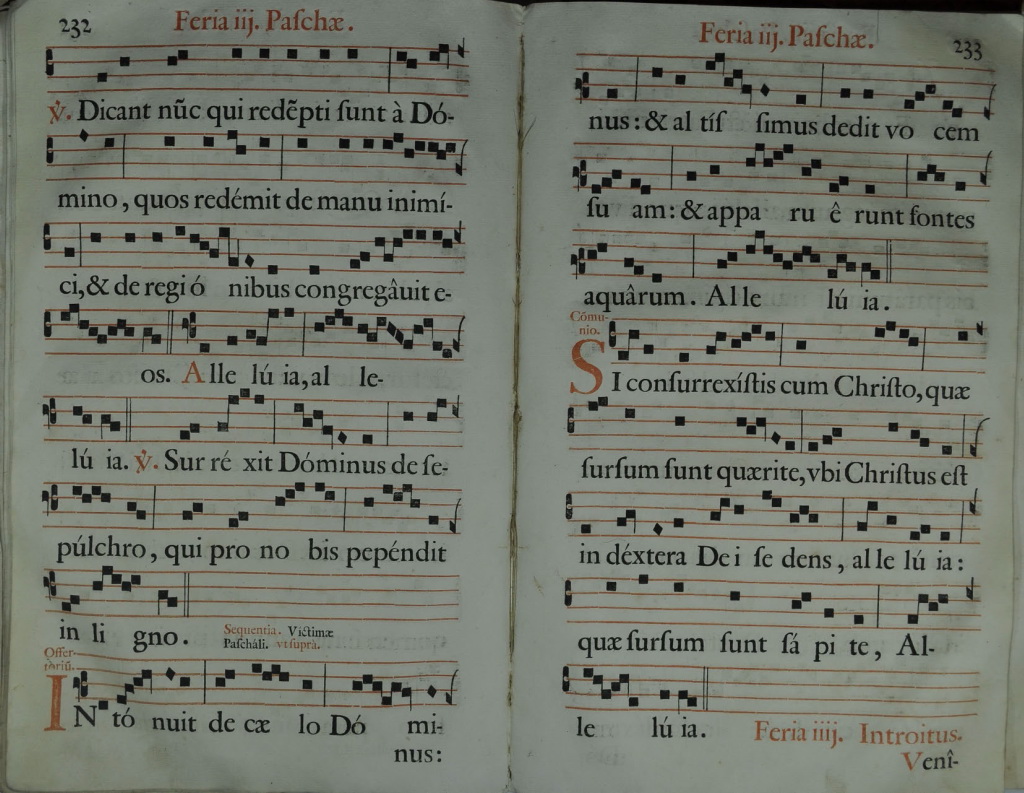 232
Feria iij. Paſchæ.
℣. Dicant nũc qui redẽpti ſunt à Dó-
mino, quos redémit de manu inimí-
ci, & de regi ó nibus congregâuit e-
os. Alle lú ia, al le-
lú ia. ℣. Sur ré xit Dóminus de ſe-
púlchro, qui pro no bis pepéndit
in li gno.
Sequentia. Victimæ
Paſcháli. vt ſuprà.
Offer-
tóriũ.
IN tó nuit de cæ lo Dó mi-
nus:
Feria iij. Paſchæ.
233
nus: & al tíſ ſimus dedit vo cem
ſu am: & appa ru ê runt fontes
aquârum. Al le lú ia.
Cómu-
nio.
SI conſurrexíſtis cum Chriſto, quæ
ſurſum ſunt quærite, vbi Chriſtus eſt
in déxtera De i ſe dens, al le lú ia:
quæ ſurſum ſunt ſá pi te, Al-
le lú ia.
Feria iiij. Introitus.
Venî-